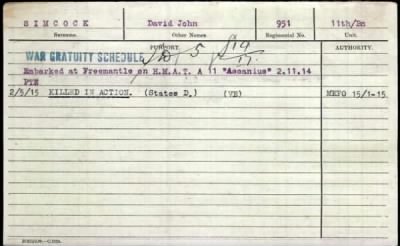 SIMCOCK David John 951 11th/Bn
Surname. Other Names Regimental No. Unit.
PURPORT. AUTHORITY.
WAR GRATUITY SCHEDULE D 5 19/
Embarked at Freemantle on H.M.A.T. A 11 "Ascanius" 2.11.14
PTE
2/5/15 KILLED IN ACTION. (States D.) (VE) MEFO 15/1-15.